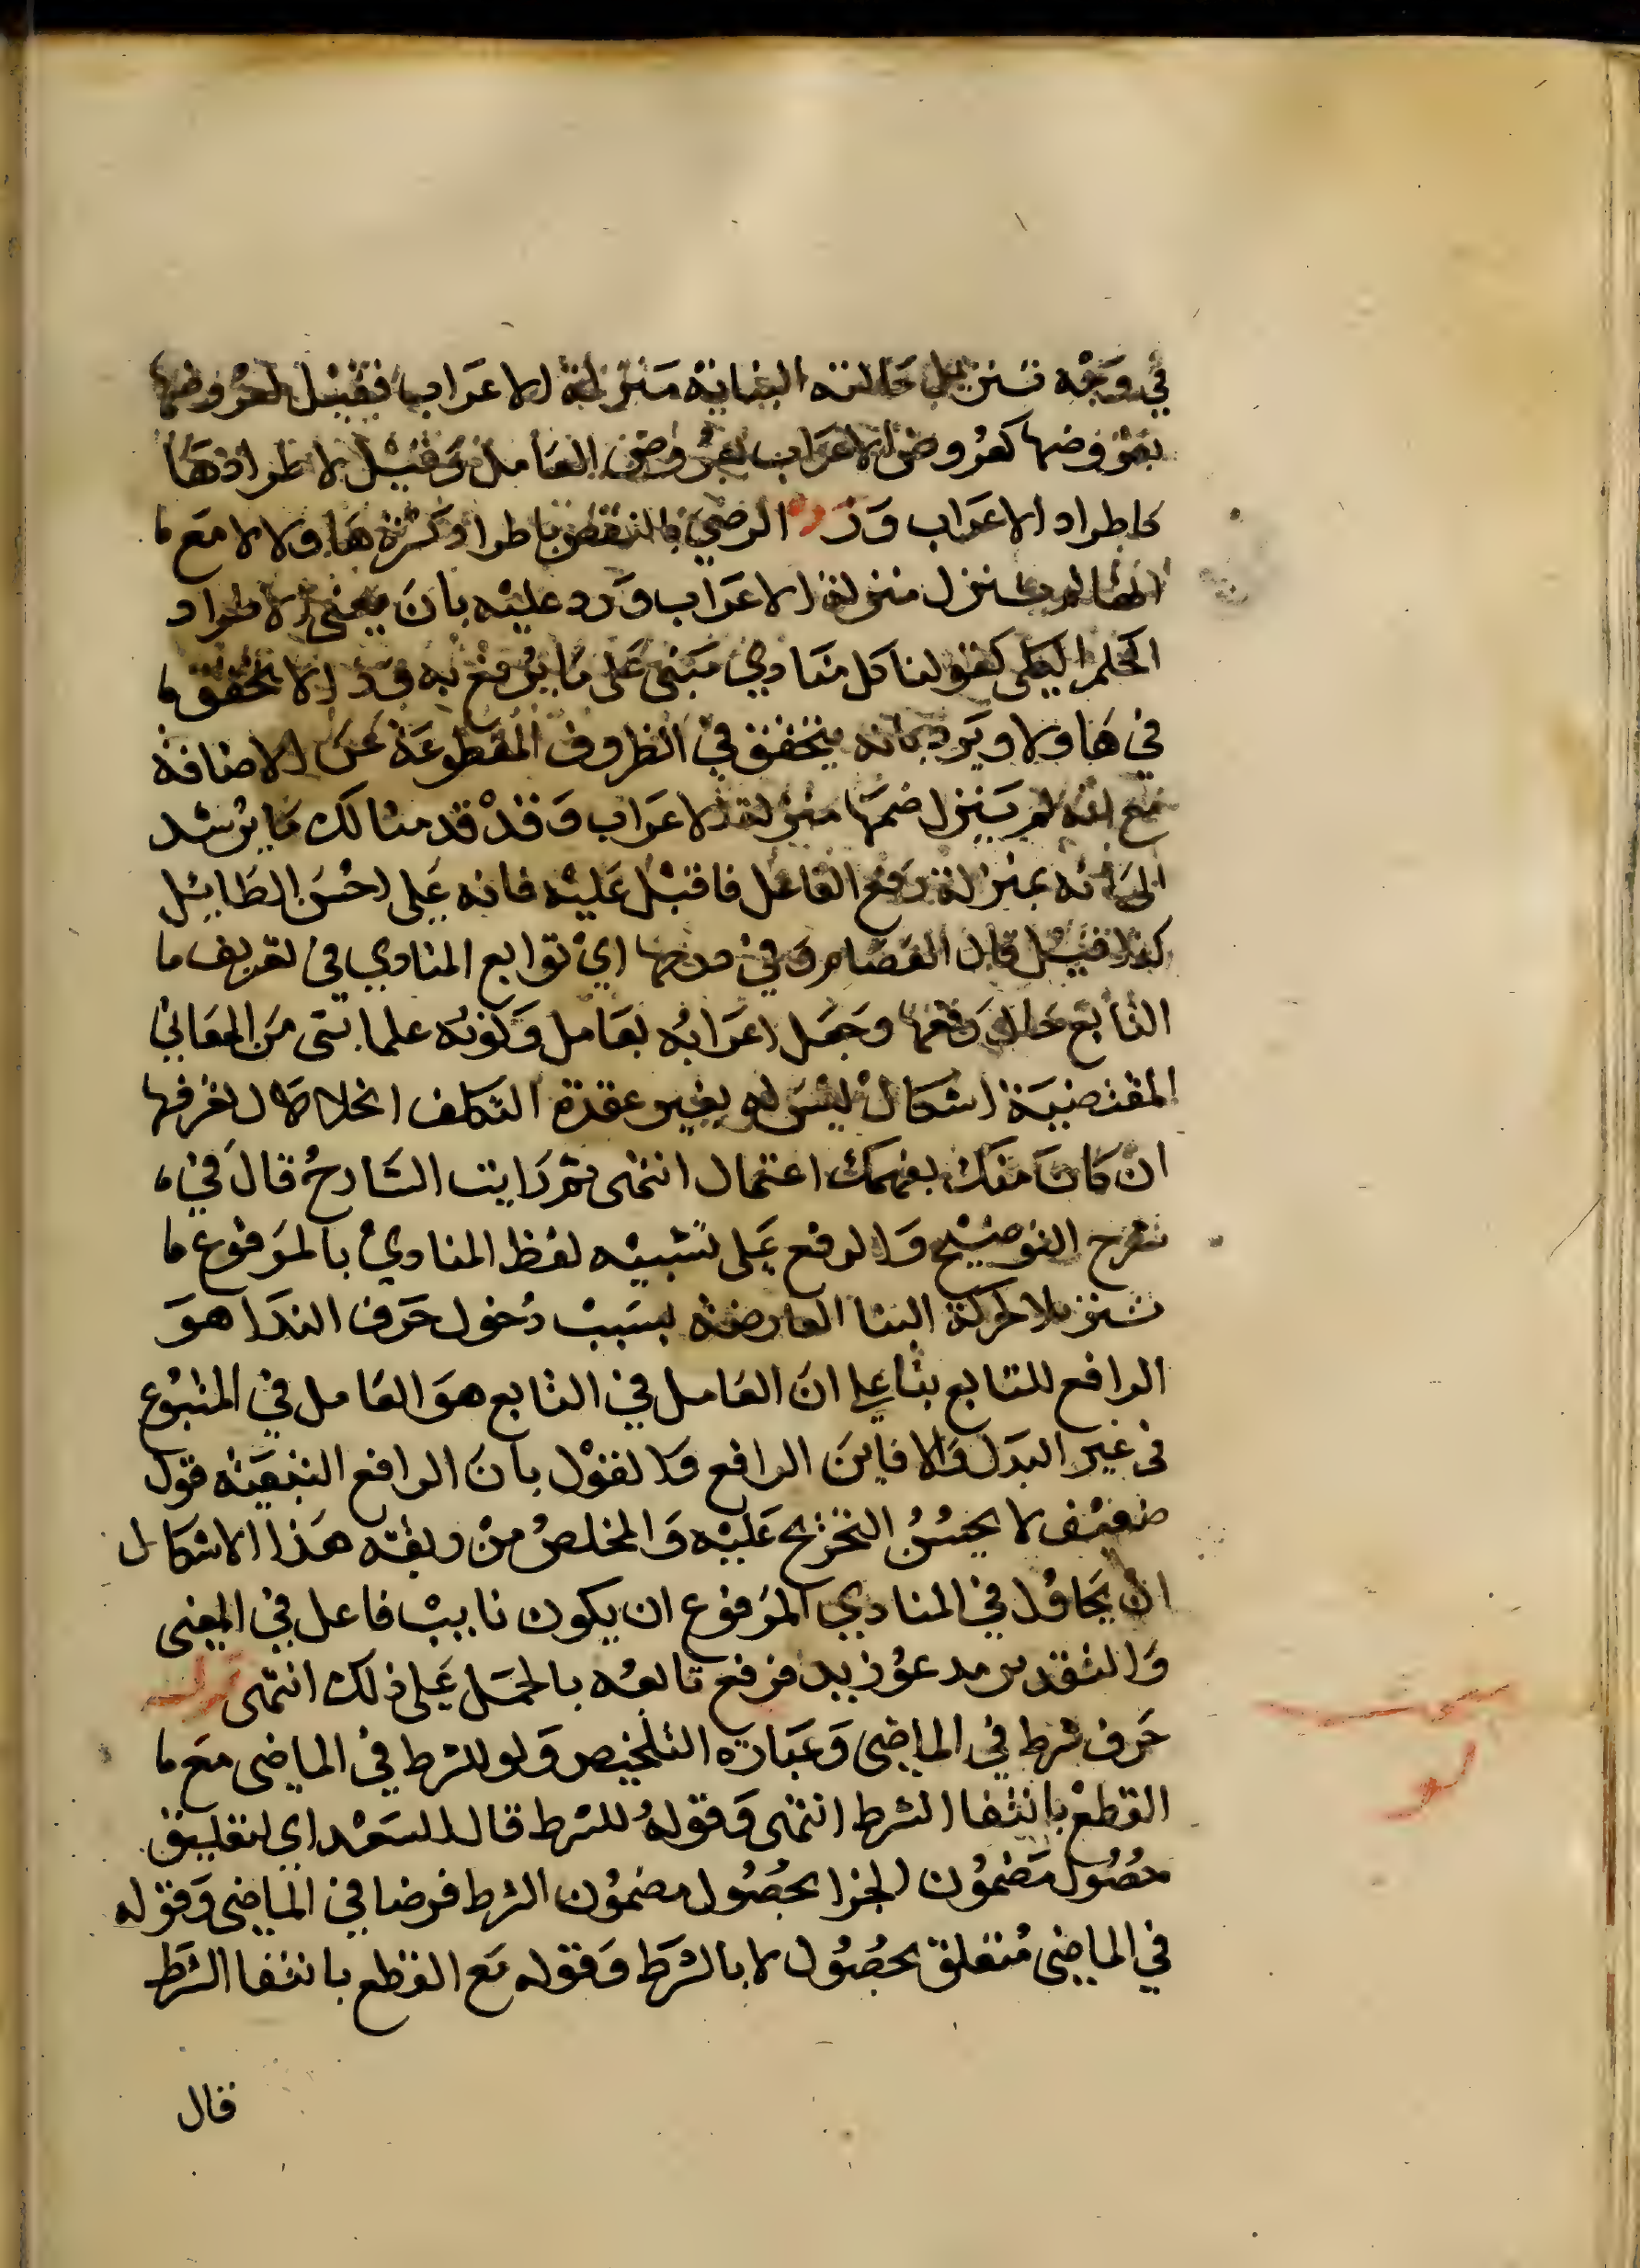 في وجه تنزيل حالته البنائية منزلة الاعراب فقيل لعروضها
بعروضها كعروض الاعراب بعروض العامل وقيل لاطرادها
كاطراد الاعراب ورد الرضي بالنقض باطراد كسرة هاولا لا مع
انها لم تنزل منزلة الاعراب ورد عليه بان معنى الاطراد
الحكم الكلى كقولنا كل منادي مبنى على ما يرفع به وذا لا تحقق
في هاولا ويرد بانه يتحقق في الظروف المقطوعة عن الاضافة
مع انه لم ينزل ضمها منزلة الاعراب وقد قدمنا لك ما يرشد
الى انه بمنزلة رفع الفاعل فاقبل عليه فانه على احسن الطايل
كذا قيل قال العصام وفي دخولها اي توابع المنادي في تعريف
التابع حال رفعها وجعل اعرابه بعامل وكونه علما بشي من المعاني
المقتضية اشكال ليس له بغير عقدة التكلف انحلال لغرفها
ان كان منك بفهمك اعتمال انتهى ثم رايت الشارح قال في
شرح التوضيح والرفع على تشبيه لفظ المنادي بالمرفوع
تنزيلا لحركة البنا العارضة بسبب دخول حرف الندا هو
الرافع للتابع بنا على ان العامل في التابع هو العامل في المتبوع
في غير البدل والا فاين الرافع والقول بان الرافع التبعية قول
ضعيف لا يحسن التخريج عليه والمخلص من ربقة هذا الاشكال
ان يجاول في المنادي المرفوع ان يكون نايب فاعل في المعنى
والتقدير مدعو زيد فرفع تابعه بالحمل على ذلك انتهى قوله
حرف شرط في الماضى وعبارة التلخيص ولو للشرط في الماضى مع
القطع بانتفا الشرط انتهى وقوله للشرط قال السعد اي لتعليق
حصول مضمون الجزا بحصول مضمون الشرط فرضا في الماضى وقوله
في الماضى متعلق بحصول لا بالشرط وقوله مع القطع بانتفا الشرط
قال
مبحث
لو